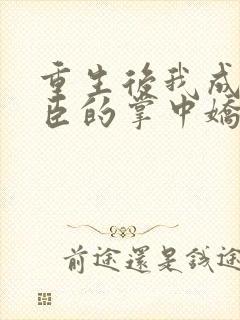 重生後我成
臣的掌中嬌
前途還是錢途